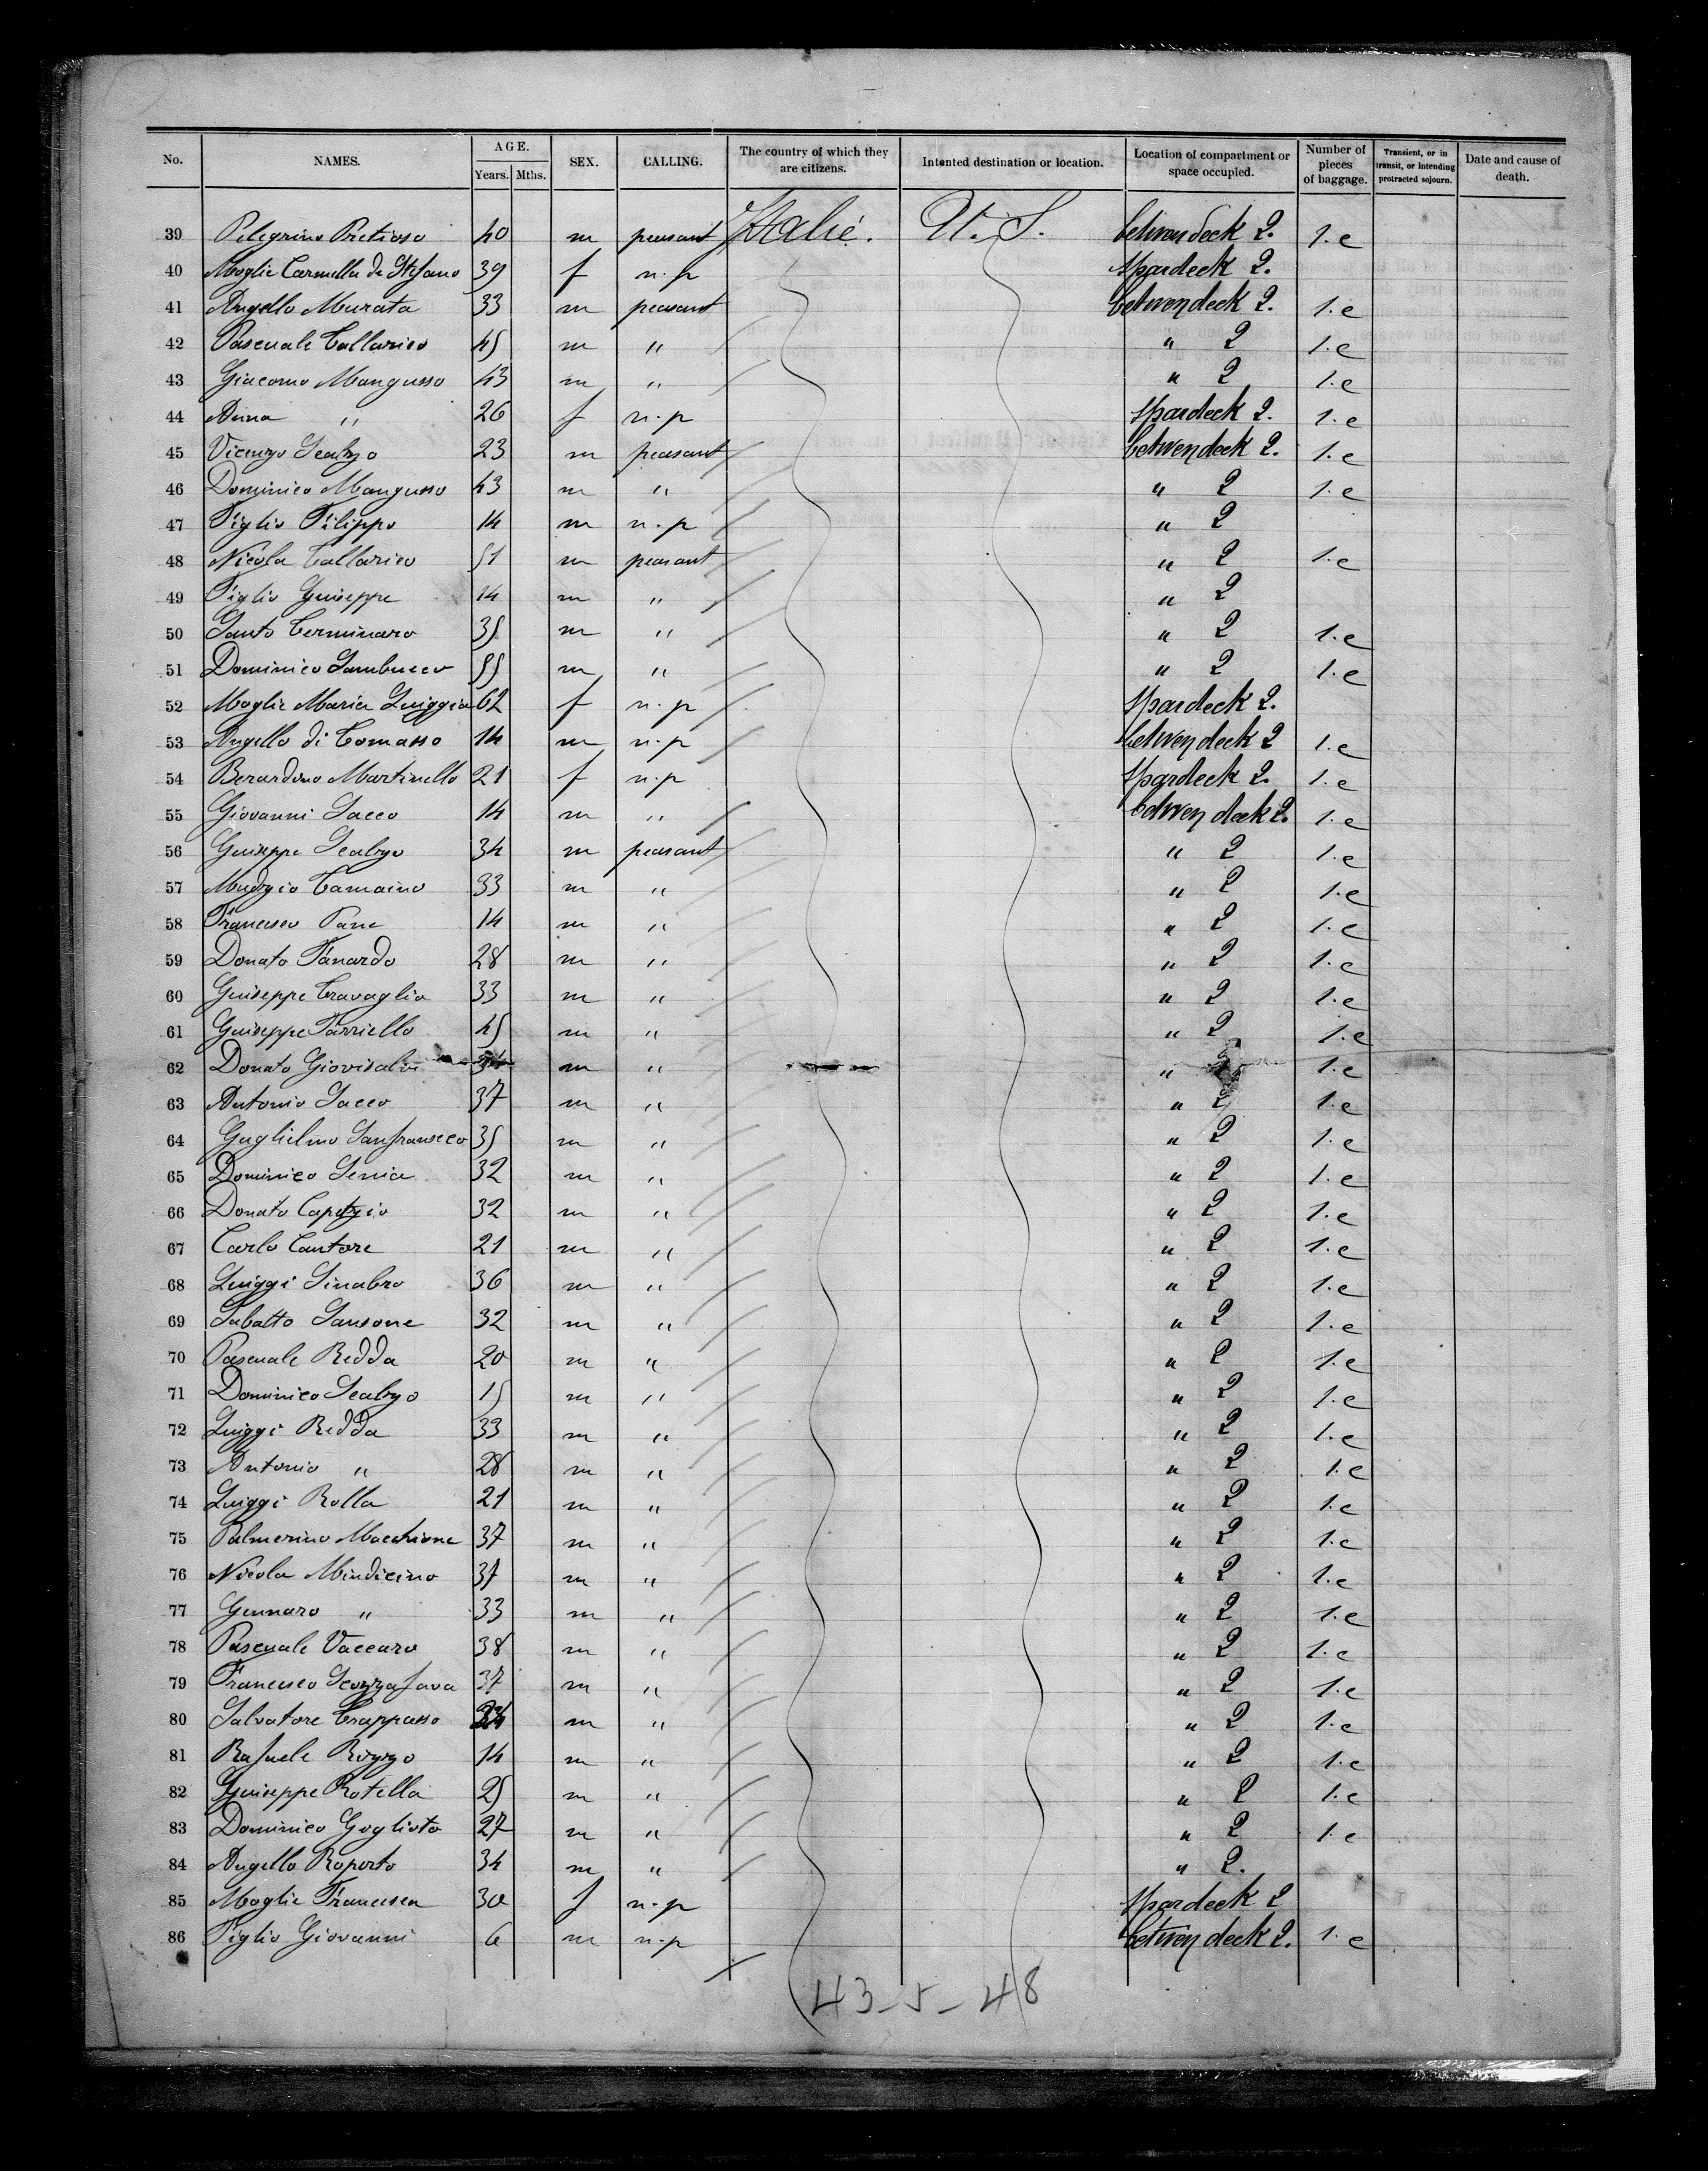 No. NAMES. AGE. Years. Mths. SEX. CALLING. The country of which they are citizens. Intented destination or location. Location of compartment or space occupied. Number of pieces of baggage. Transient, or in transit, or intending protracted sojourn. Date and cause of death.
39 Pelegrino Pretioso 40 m peasant Italie. U. S. betwendeck 2. 1.c
40 Moglie Carmella di Stefano 39 f n.p spardeck 2.
41 Angello Murata 33 m peasant betwendeck 2. 1.c
42 Pascuale Tallarico 45 m " " 2 1.c
43 Giacomo Mangusso 43 m " " 2 1.c
44 Anna " 26 f n.p spardeck 2. 1.c
45 Vicenzo Scalzo 23 m peasant betwendeck 2. 1.c
46 Dominico Mangusso 43 m " " 2 1.c
47 Figlio Filippo 14 m n.p " 2
48 Nicola Tallarico 51 m peasant " 2 1.c
49 Figlio Guiseppe 14 m " " 2
50 Santo Cerminaro 35 m " " 2 1.c
51 Dominico Sambucco 55 m " " 2 1.c
52 Moglie Maria Luiggia 62 f n.p spardeck 2.
53 Angello di Tomasso 14 m n.p betwendeck 2 1.c
54 Berardino Martinello 21 f n.p spardeck 2. 1.c
55 Giovanni Sacco 14 m " betwendeck 2. 1.c
56 Guiseppe Scalzo 34 m peasant " 2 1.c
57 Mudzio Tamaino 33 m " " 2 1.c
58 Francesco Pane 14 m " " 2 1.c
59 Donato Fanardo 28 m " " 2 1.c
60 Guiseppe Travaglio 33 m " " 2 1.c
61 Guiseppe Parriello 45 m " " 2 1.c
62 Donato m " " 1.c
63 Antonio Sacco 37 m " " 2 1.c
64 Guglielmo Sanfransceco 35 m " " 2 1.c
65 Dominico Senia 32 m " " 2 1.c
66 Donato Caputzio 32 m " " 2 1.c
67 Carlo Cantore 21 m " " 2 1.c
68 Luiggi Sinabro 36 m " " 2 1.c
69 Sabatto Sansone 32 m " " 2 1.c
70 Pascuale Redda 20 m " " 2 1.c
71 Dominico Scalzo 15 m " " 2 1.c
72 Luiggi Redda 33 m " " 2 1.c
73 Antonio " 28 m " " 2 1.c
74 Luiggi Rolla 21 m " " 2 1.c
75 Palmerino Macchione 37 m " " 2 1.c
76 Nicola Mindicino 37 m " " 2 1.c
77 Gennaro " 33 m " " 2 1.c
78 Pascuale Vaccaro 38 m " " 2 1.c
79 Francesco Scozzafava 37 m " " 2 1.c
80 Salvatore Trappasso m " " 2 1.c
81 Rafaele Rozzo 14 m " " 2 1.c
82 Guiseppe Rotella 25 m " " 2 1.c
83 Dominico Goglioto 27 m " " 2 1.c
84 Angello Roporto 34 m " " 2.
85 Moglie Francesca 30 f n.p spardeck 2
86 Figlio Giovanni 6 m n.p betwendeck 2. 1.c
43-5-48